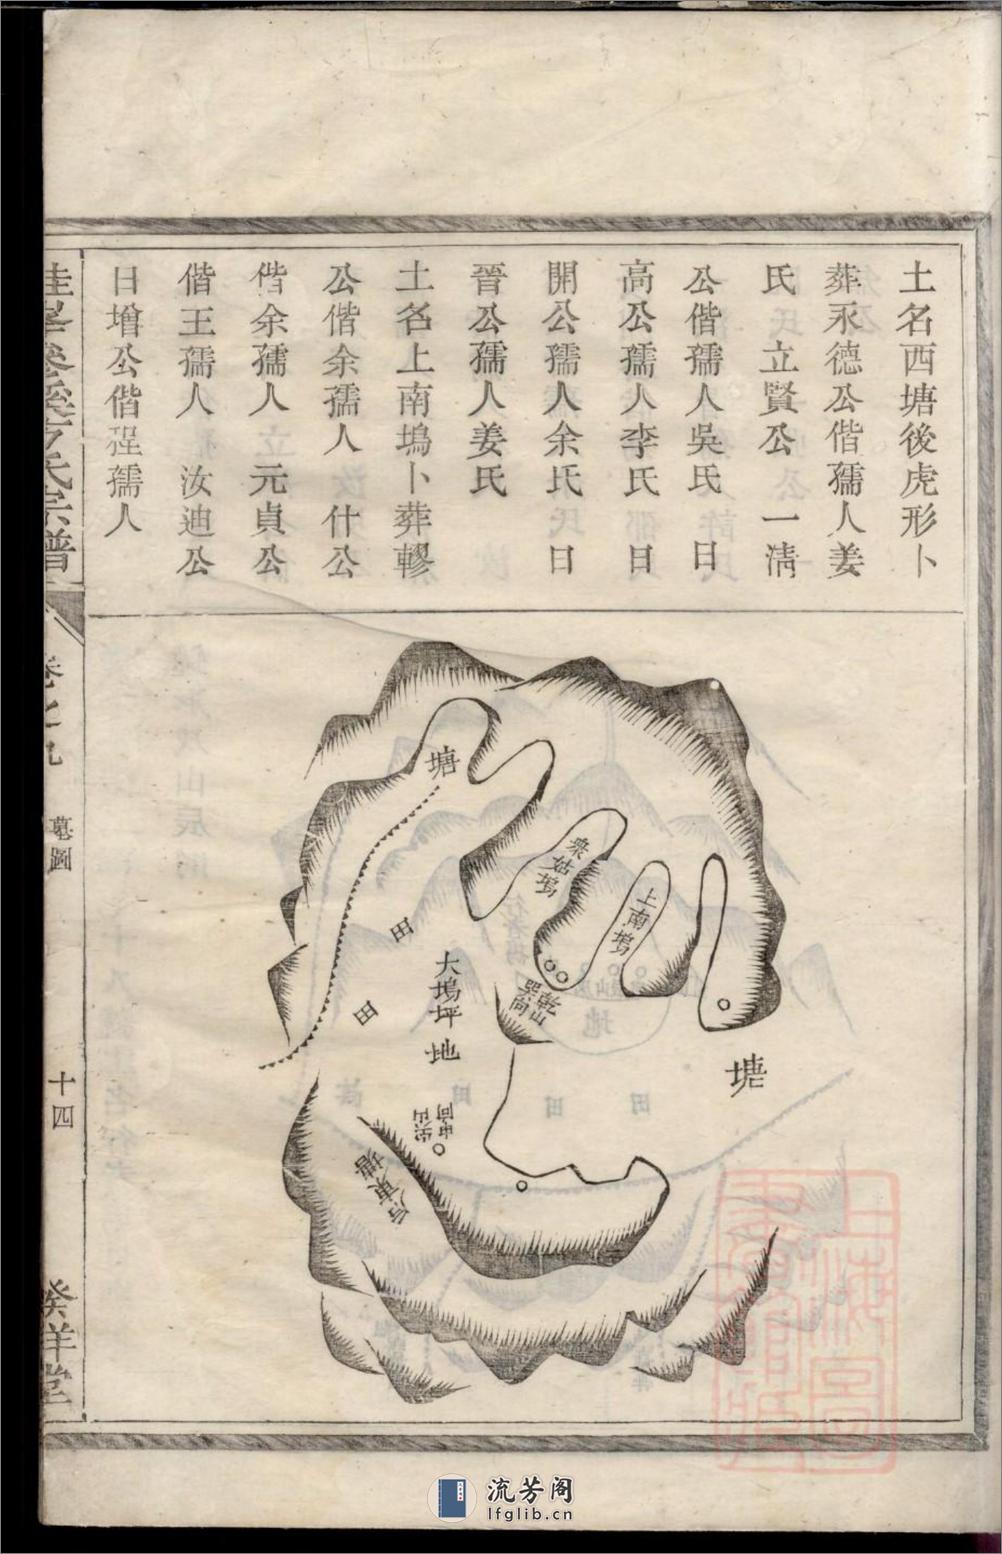 土名西塘後虎形卜
葬永德公偕孺人姜
氏立賢公 一淸
公偕孺人吳氏 日
高公孺人李氏 日
開公孺人余氏 日
晉公孺人姜氏
土名上南塢卜葬轇
公偕余孺人 什公
偕余孺人 元貞公
偕王孺人 汝迪公
日增公偕程孺人
塘
衆姑塢
上南塢
乾山
巽向
塘
田
田
大塢坪地
東塘
氏宗譜
墓圖
十四
流芳阁
lfglib.cn